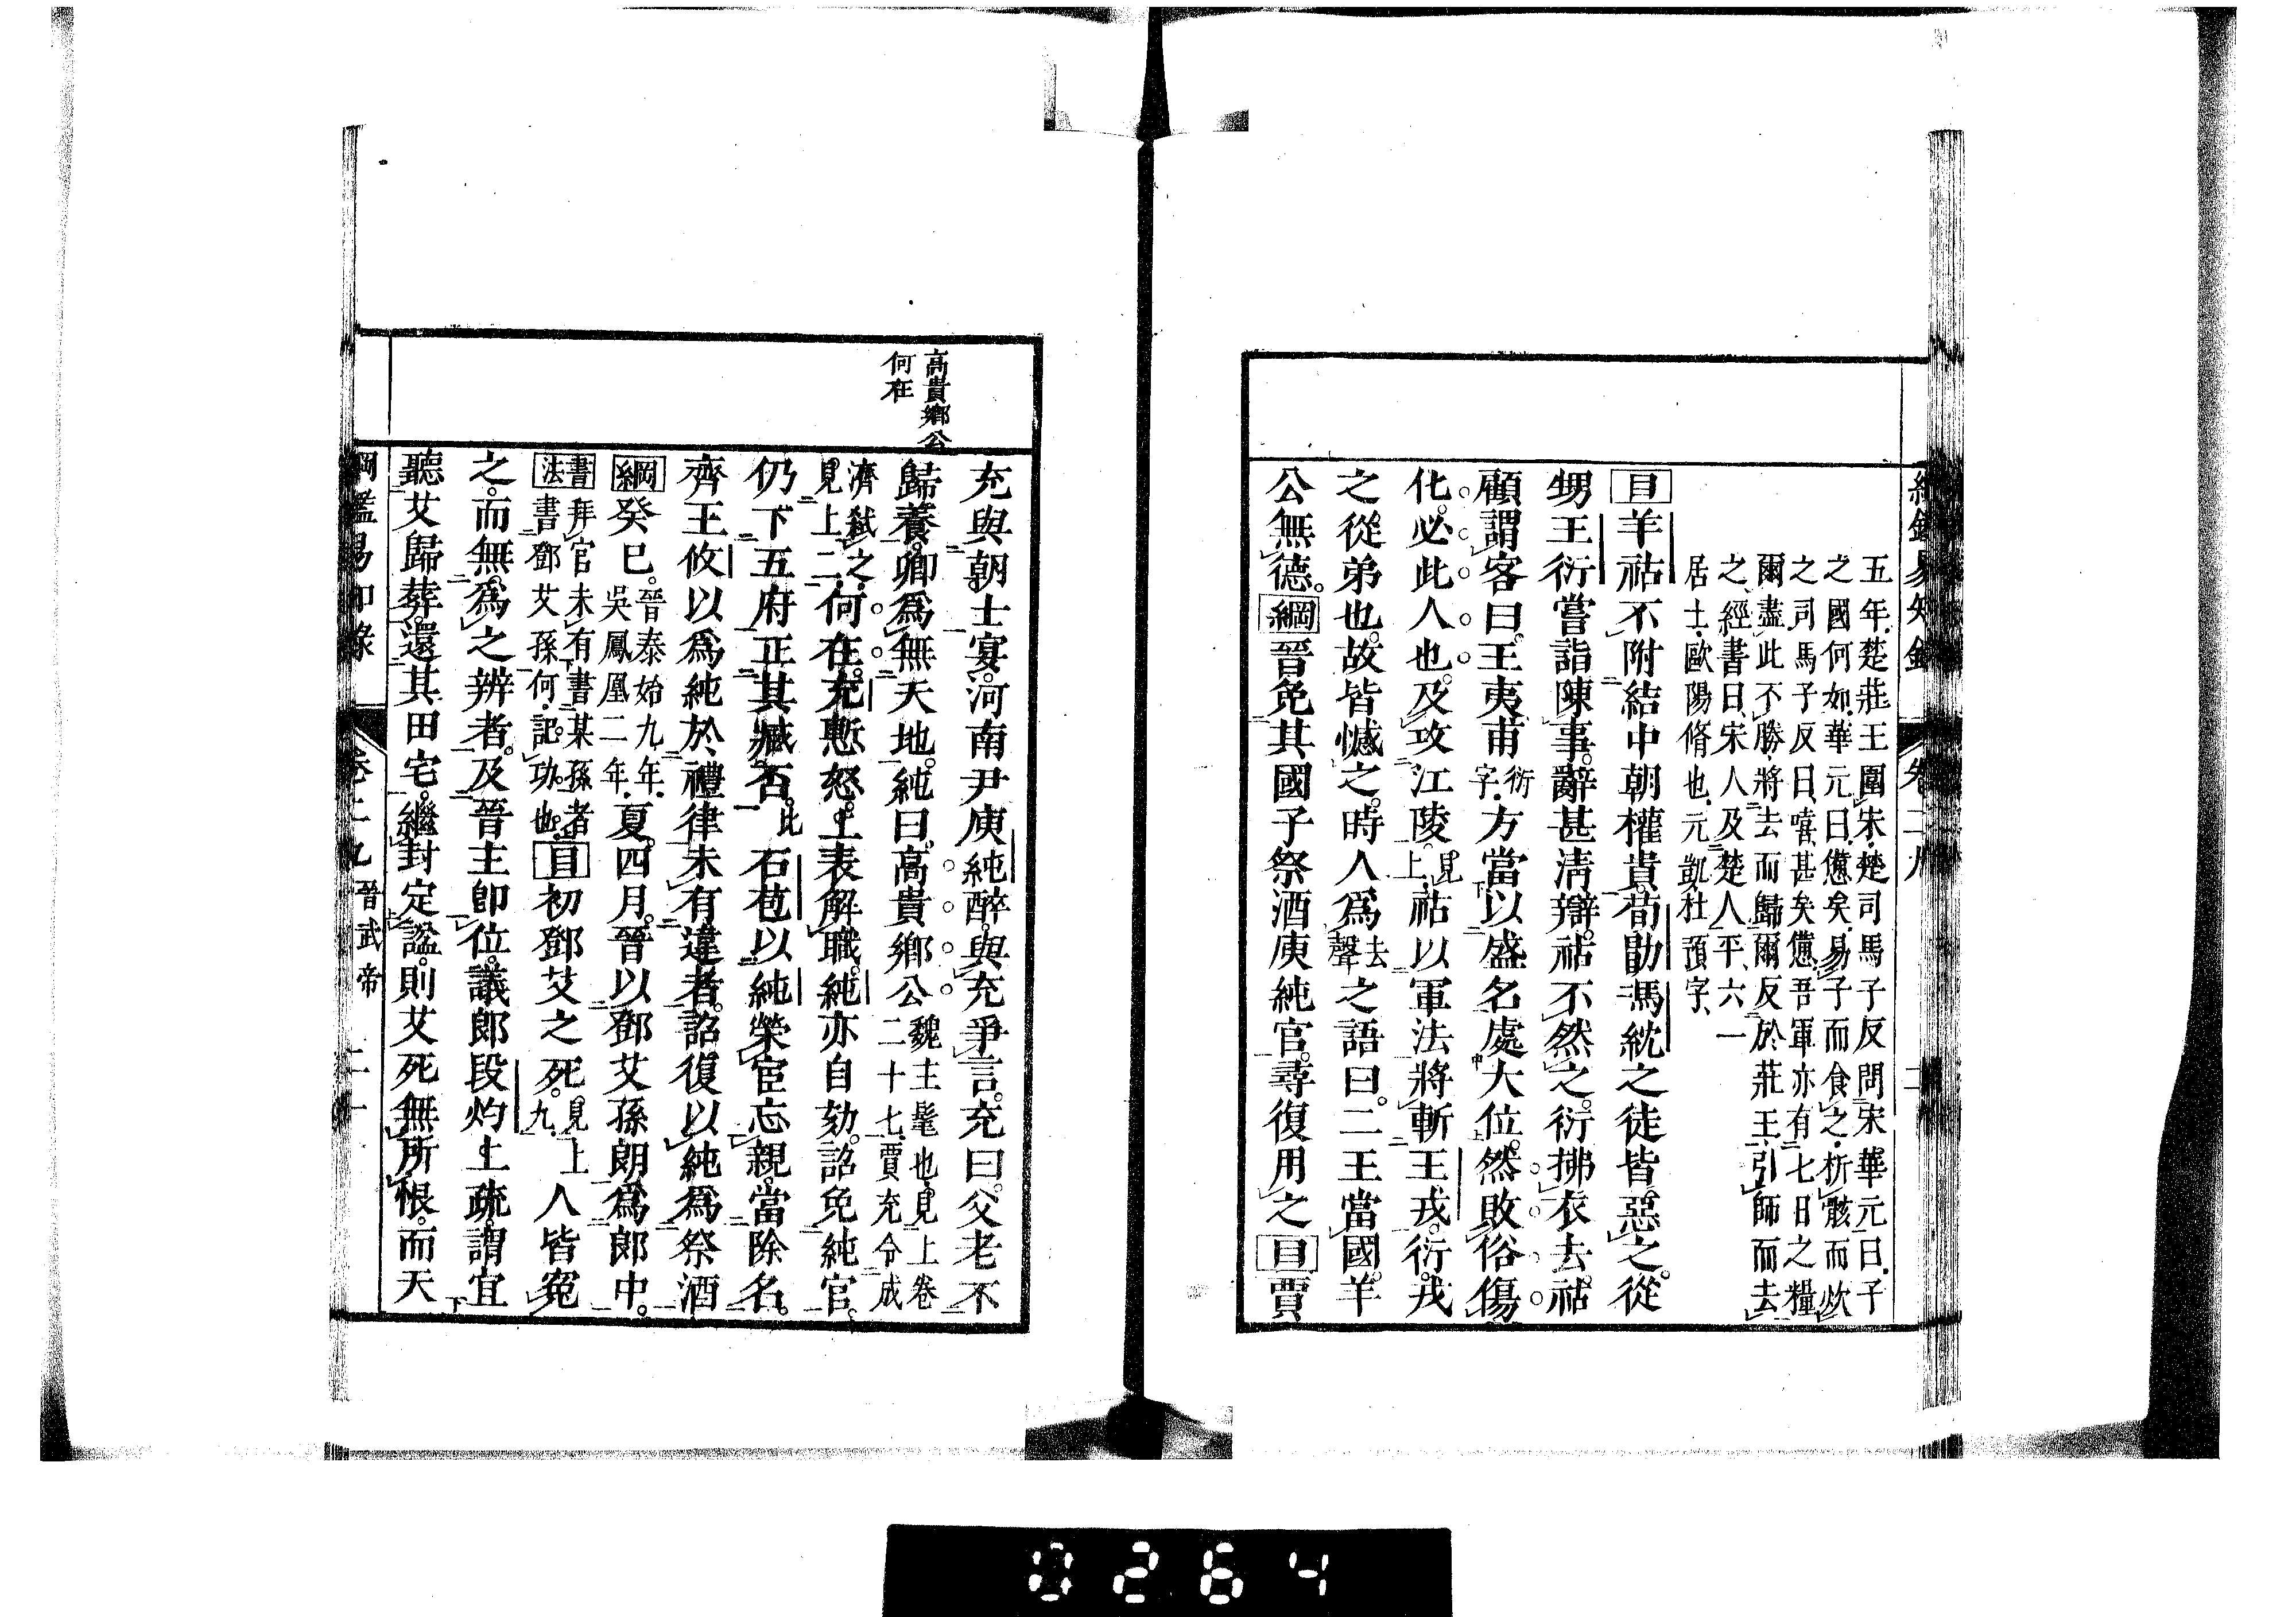 五年楚莊王圍宋楚司馬子反問宋華元曰子
之國何如華元曰憊矣易子而食之析骸而炊
之司馬子反曰嘻甚矣憊吾軍亦有七日之糧
爾盡此不勝將去而歸爾反於莊王引師而去
之經書曰宋人及楚人平六一
居士歐陽脩也元凱杜預字
目羊祜不附結中朝權貴荀勖馮紞之徒皆惡之從
甥王衍嘗詣陳事辭甚清辯祜不然之衍拂衣去祜
顧謂客曰王夷甫衍字方當以盛名處大位然敗俗傷
化必此人也及攻江陵見上祜以軍法將斬王戎衍戎
之從弟也故皆憾之時人為去聲之語曰二王當國羊
公無德綱晉免其國子祭酒庾純官尋復用之目賈
高貴鄉公
何在
充與朝士宴河南尹庾純醉與充爭言充曰父老不
歸養卿為無天地純曰高貴鄉公魏主髦也見上卷二十七賈充令成
濟弒之見上二何在充慙怒上表解職純亦自劾詔免純官
仍下五府正其臧否此石苞以純榮宦忘親當除名
齊王攸以為純於禮律未有違者詔復以純為祭酒
綱癸巳晉泰始九年吳鳳凰二年夏四月晉以鄧艾孫朗為郎中
書法拜官未有書某孫者書鄧艾孫何記功也目初鄧艾之死見上九人皆冤
之而無為之辨者及晉主即位議郎段灼上疏謂宜
聽艾歸葬還其田宅繼封定諡則艾死無所恨而天
綱鑑易知錄 卷二九 晉武帝 二十
0264